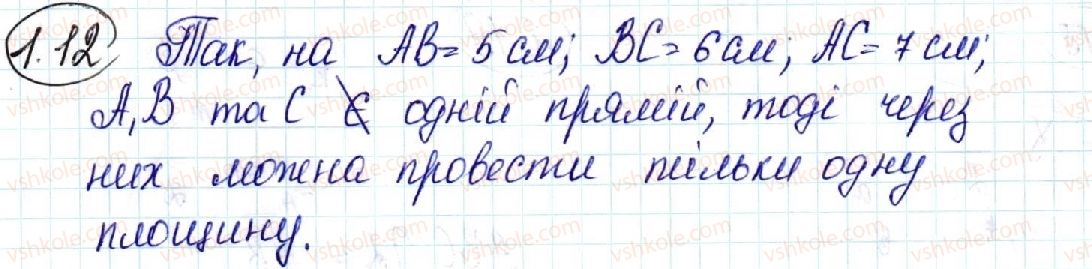 1.12 Так, на AB = 5 см; BC = 6 см; AC = 7 см;
A, B та C ∉ одній прямій, тоді через
них можна провести тільки одну
площину.